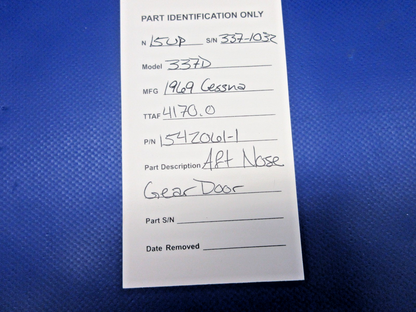 PART IDENTIFICATION ONLY
N 15UP S/N 337-1032
Model 337D
MFG 1969 Cessna
TTAF 4170.0
P/N 1542061-1
Part Description Aft Nose
Gear Door
Part S/N
Date Removed